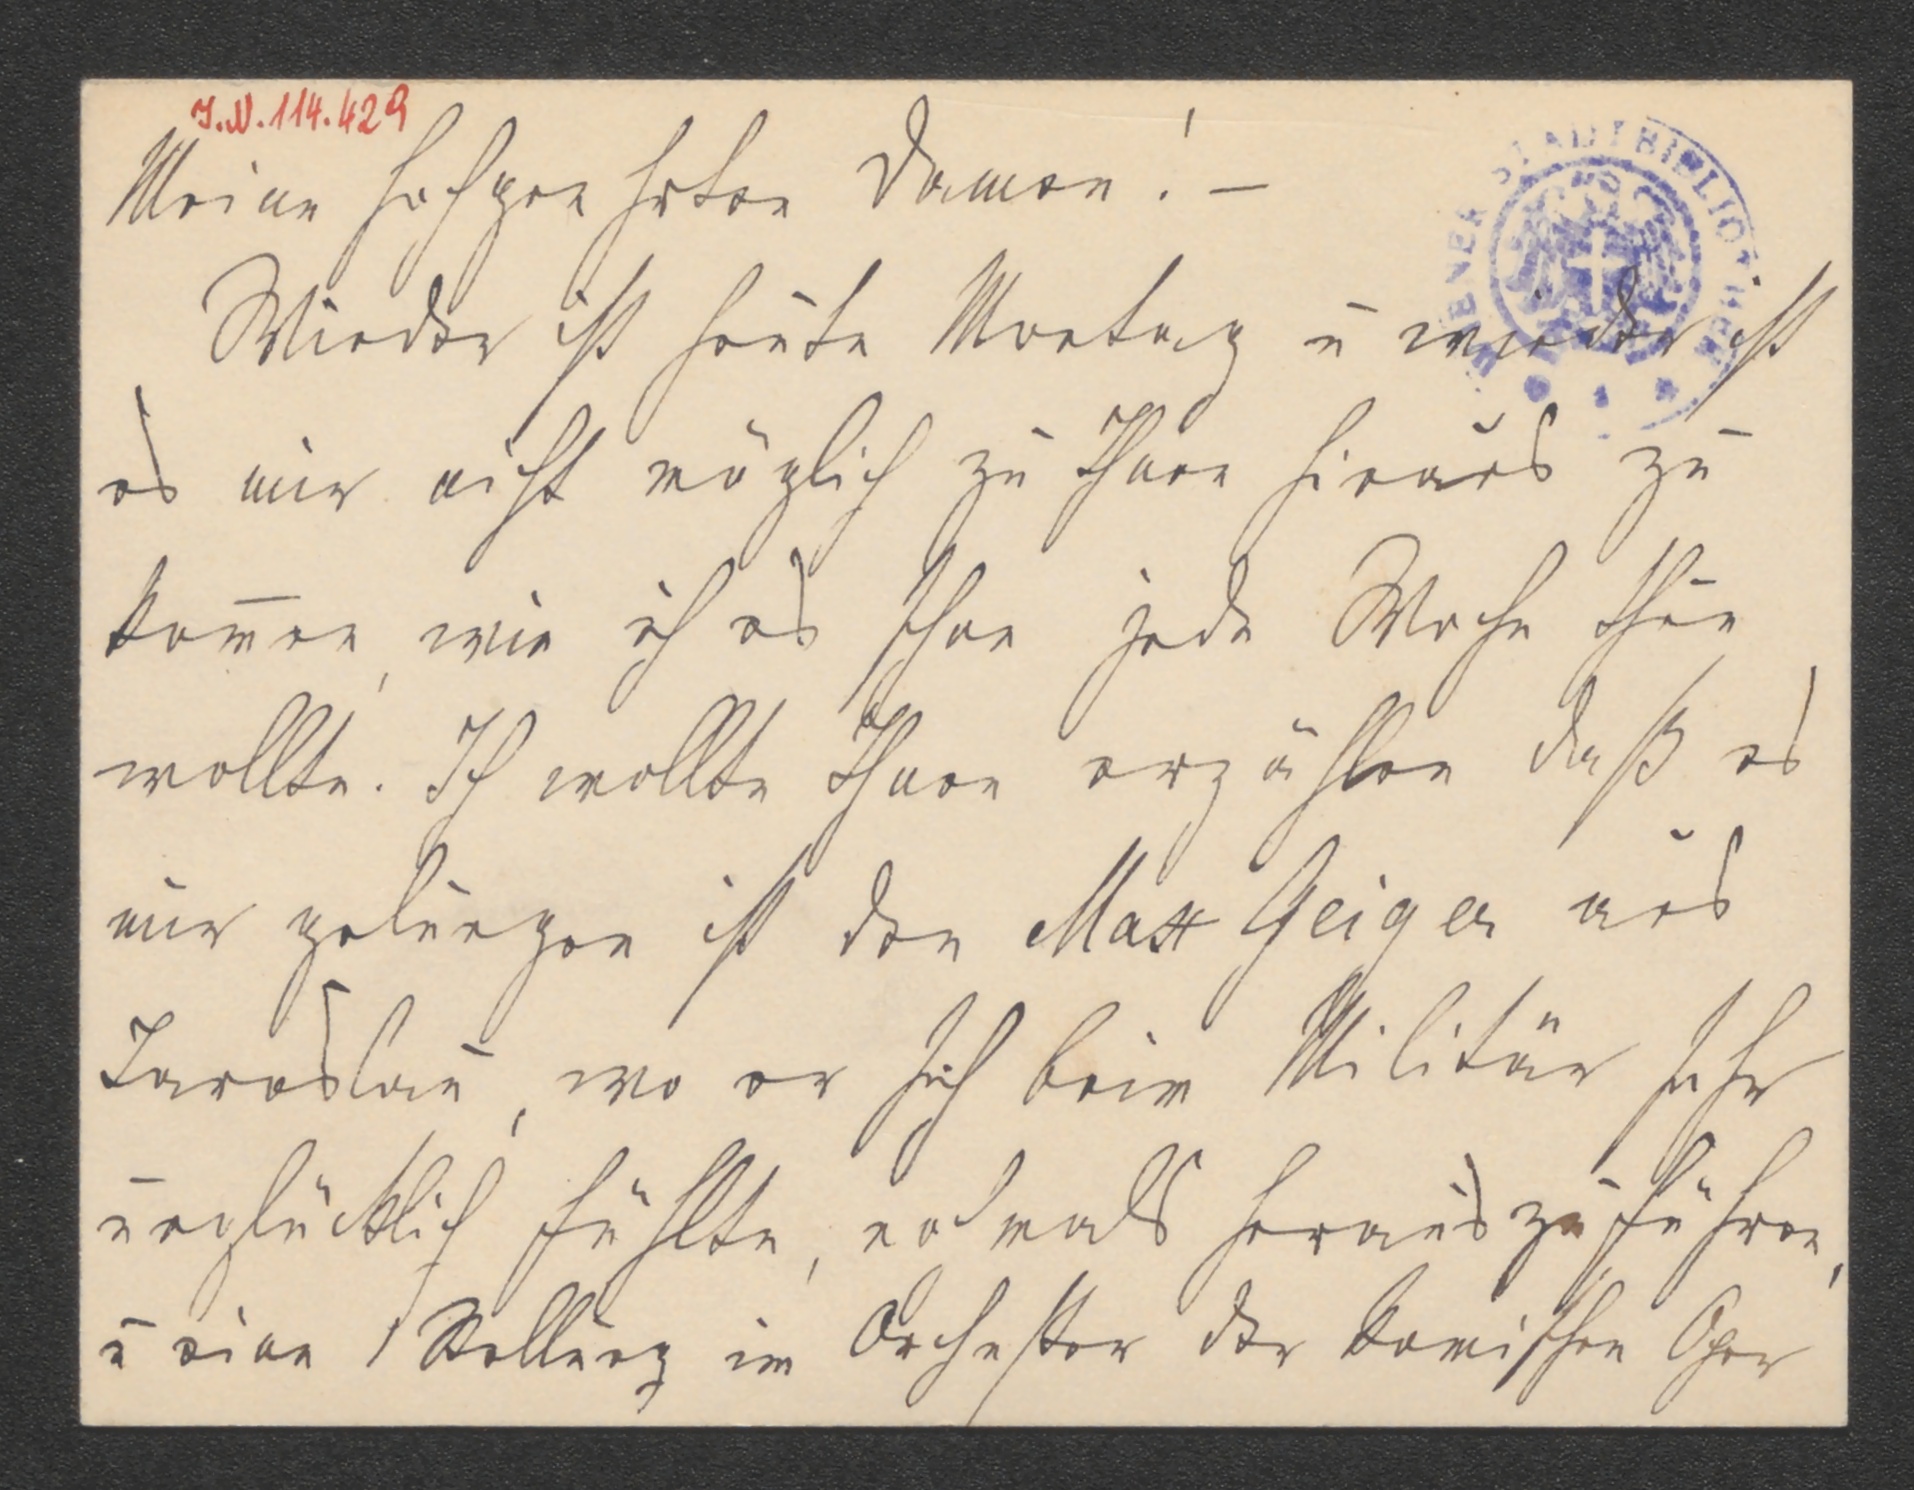 I.N. 114.429
Meine hochgeehrten Damen! –
WIENER STADTBIBLIOTHEK
Wieder ist heute Montag u wieder ist
es mir nicht möglich zu Ihnen hinaus zu
kom̄en, wie ich es schon jede Woche thun
wollte. Ich wollte Ihnen erzählen daß es
mir gelungen ist den Max Geiger aus
Jaroslau, wo er sich beim Militär sehr
unglücklich fühlte, nochmals herauszuführen,
u eine Stellung im Orchester der komischen Oper